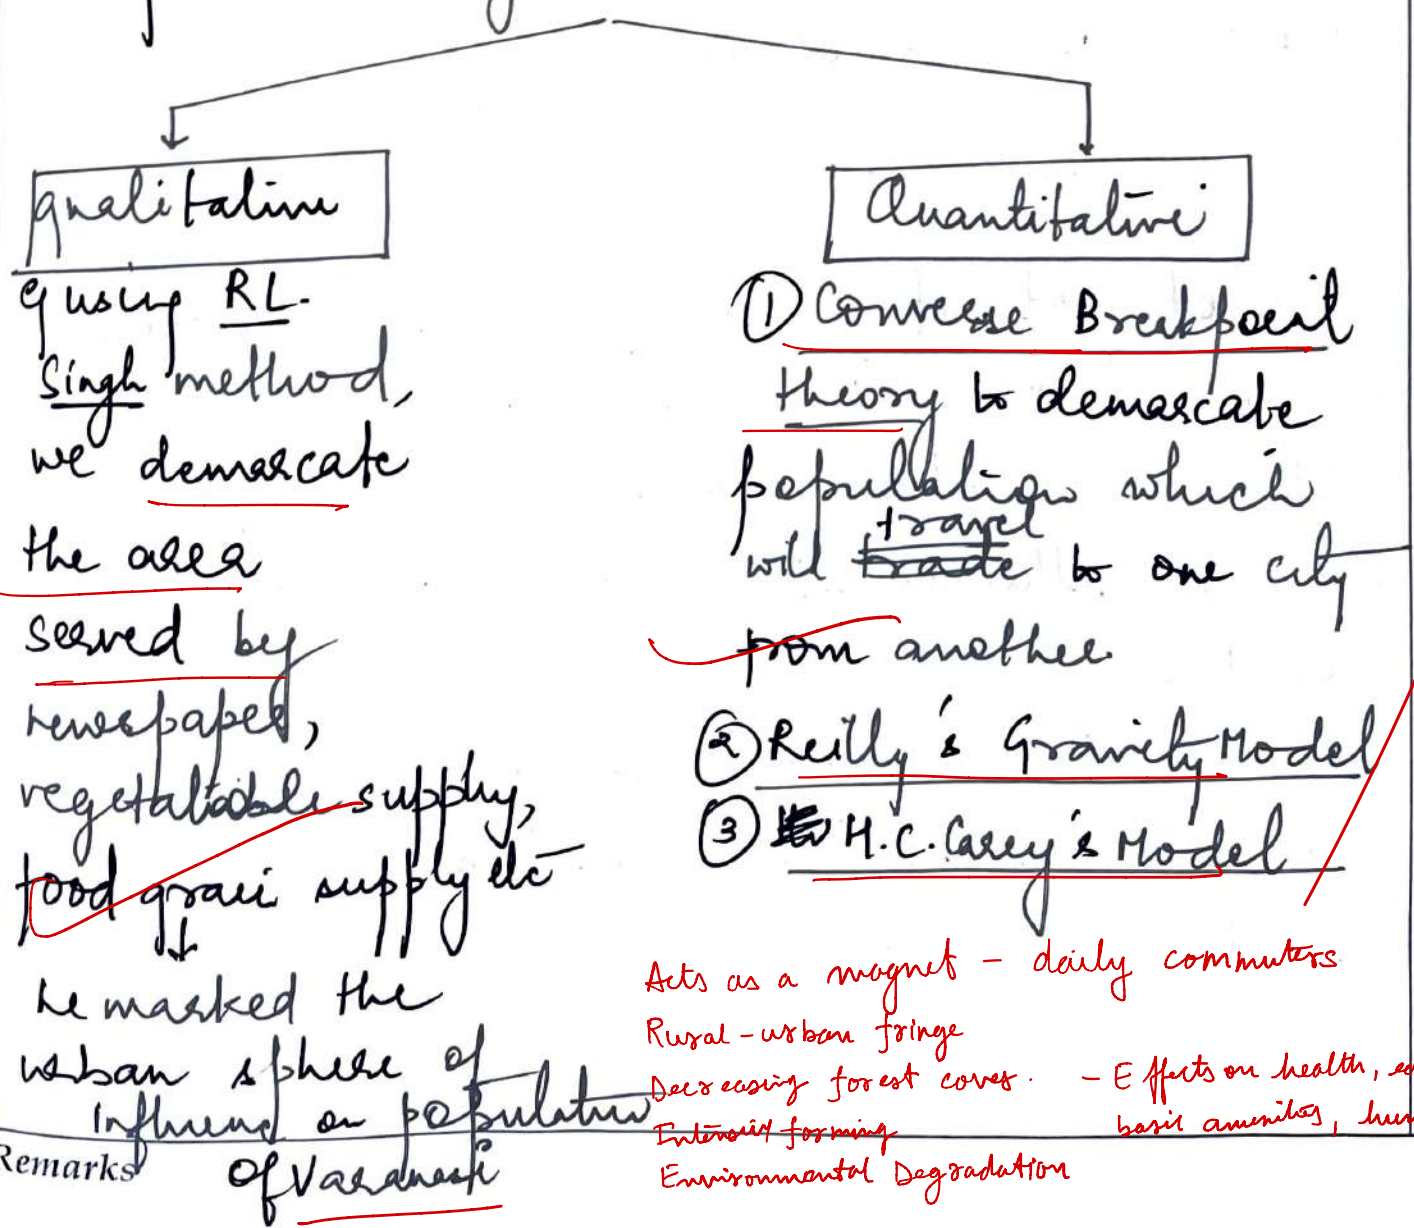 qualitative
eg using RL.
Singh method,
we demarcate
the area
served by
newspaper,
supply,
food grain supply etc
↓
he marked the
urban sphere of
influence on population
of Varanasi
Quantitative
① Converse Breakpoint
theory to demarcate
population which
travel
will trade to one city
from another
② Reilly's Gravity Model
③ H.C. Carey's Model
Acts as a magnet - daily commuters
Rural-urban fringe
Decreasing forest cover. - Effects on health,
Intensify farming basic amenities,
Environmental Degradation
Remarks